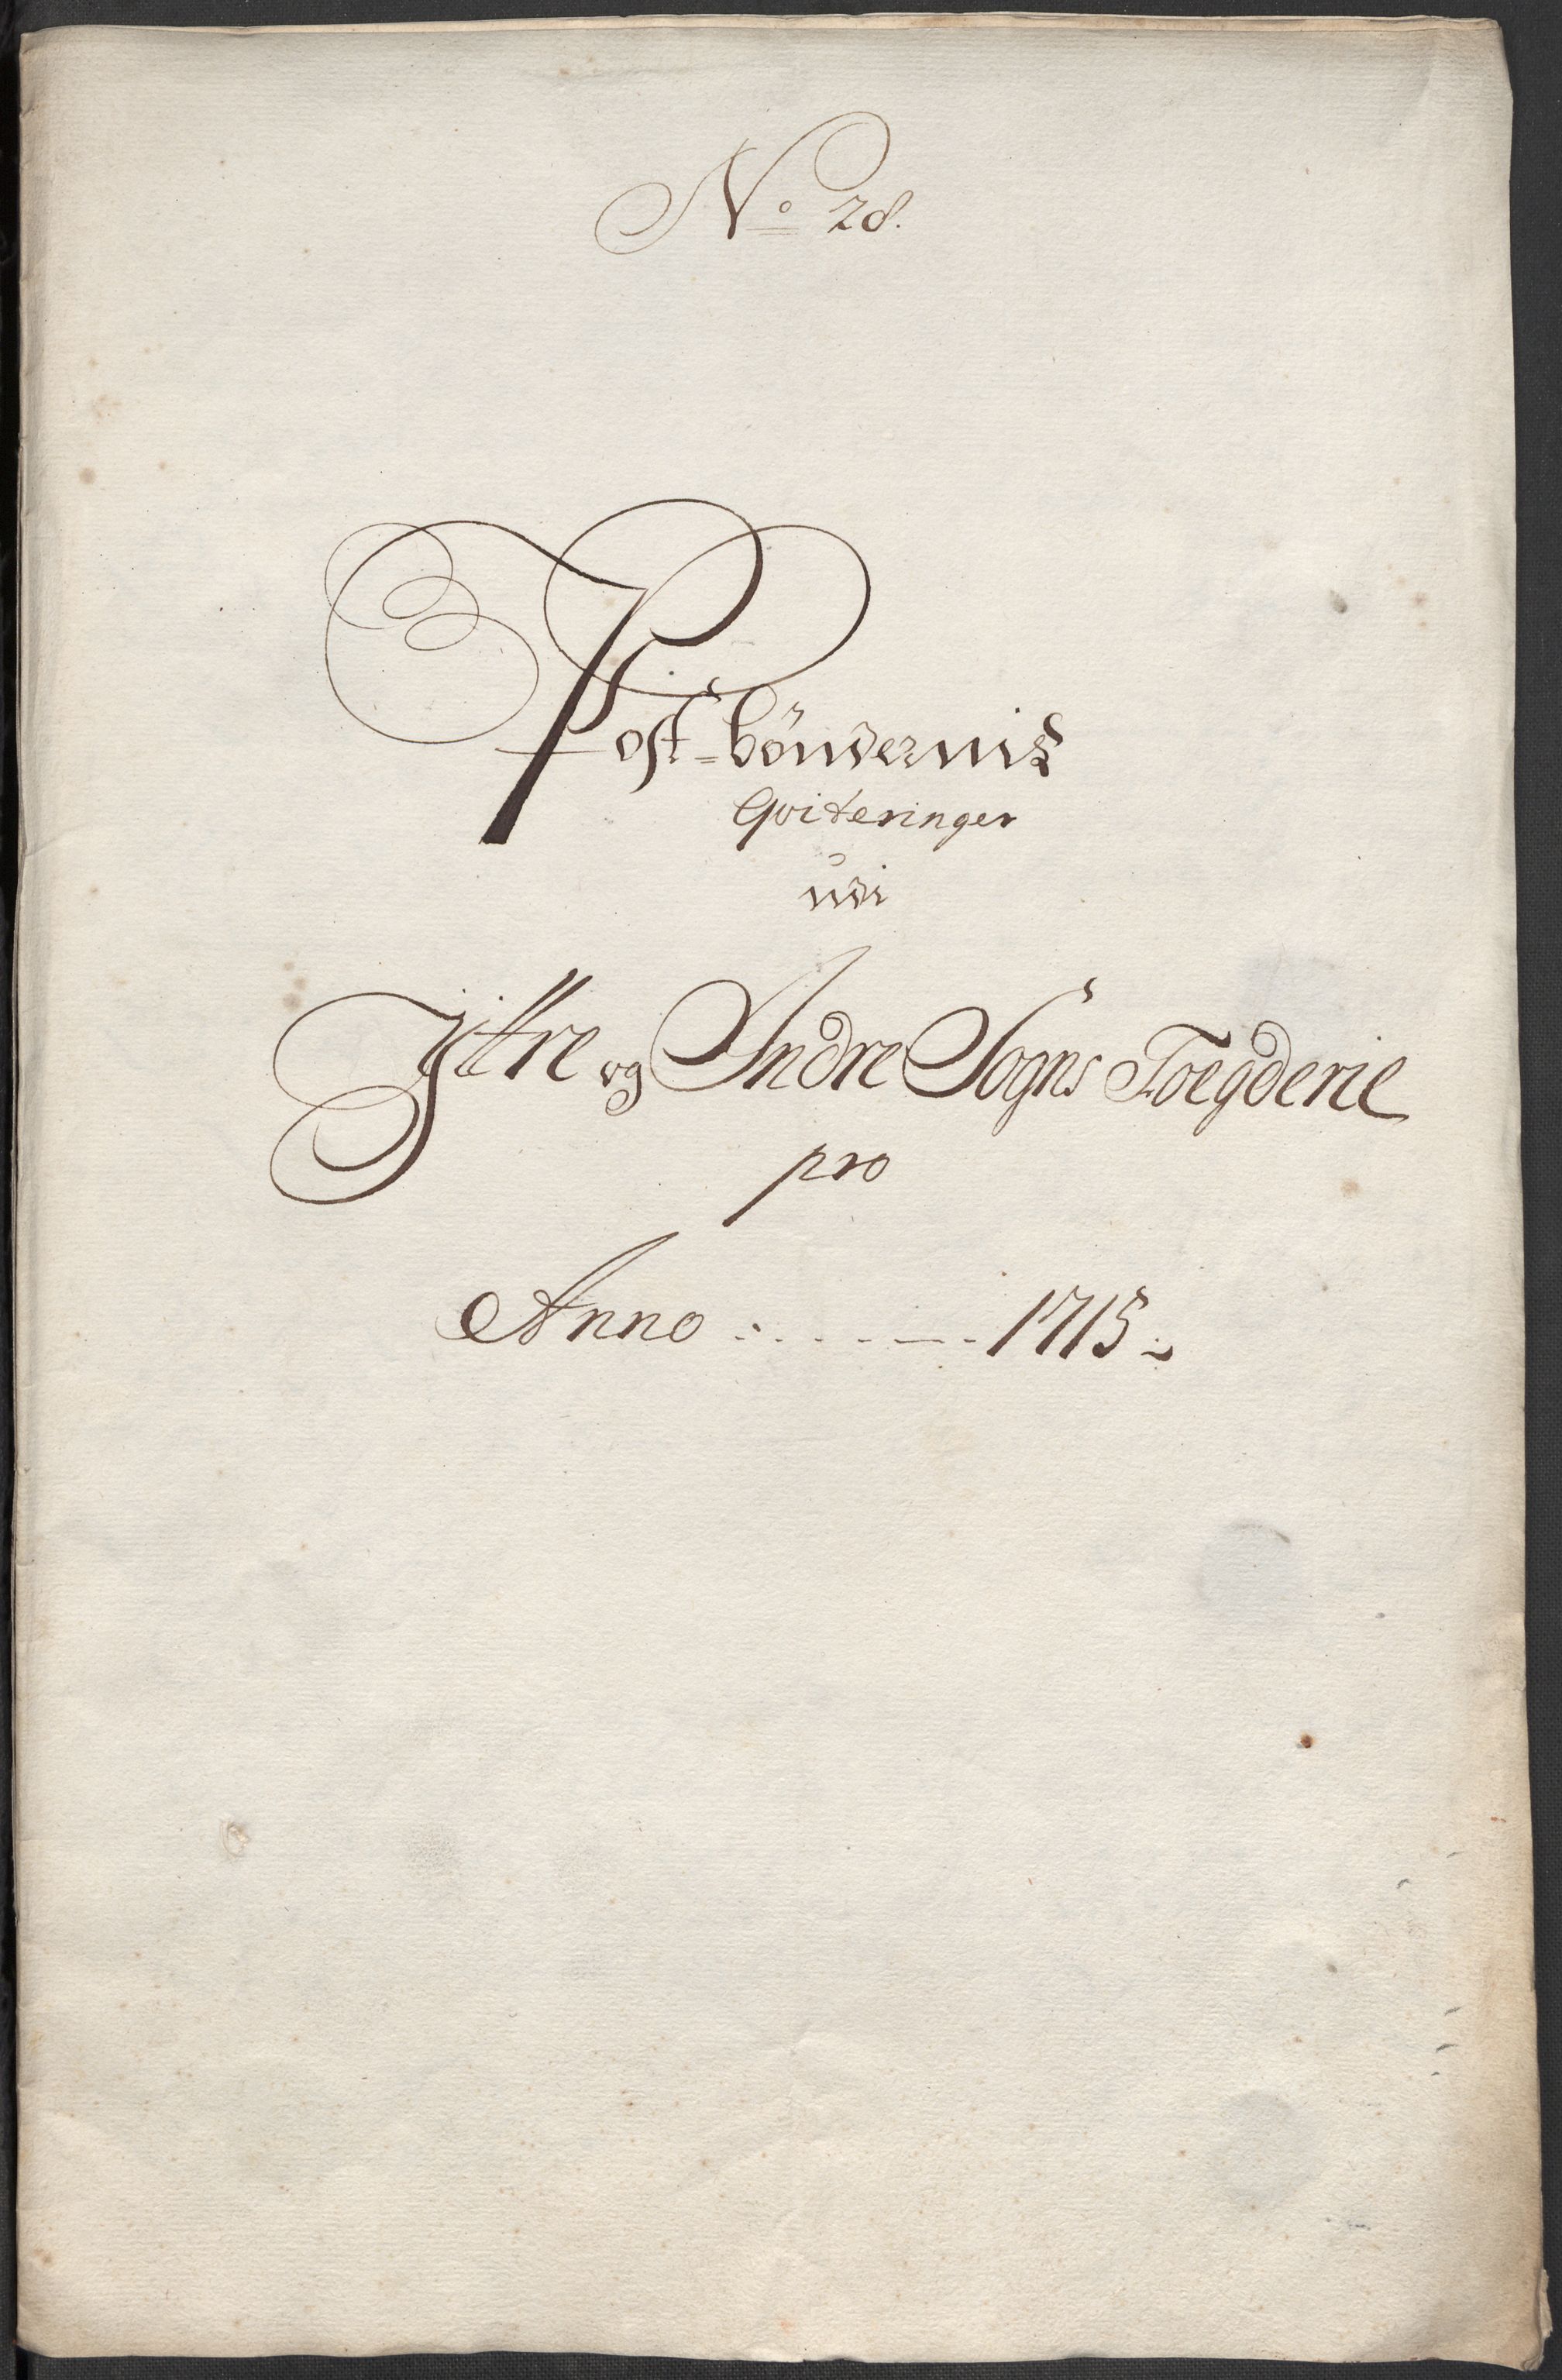 No 28.
Post-böndernis
Qviteringer
udi
Ÿttre og Indre Sogns Foegderie
pro
Anno . . . . . . . 1715